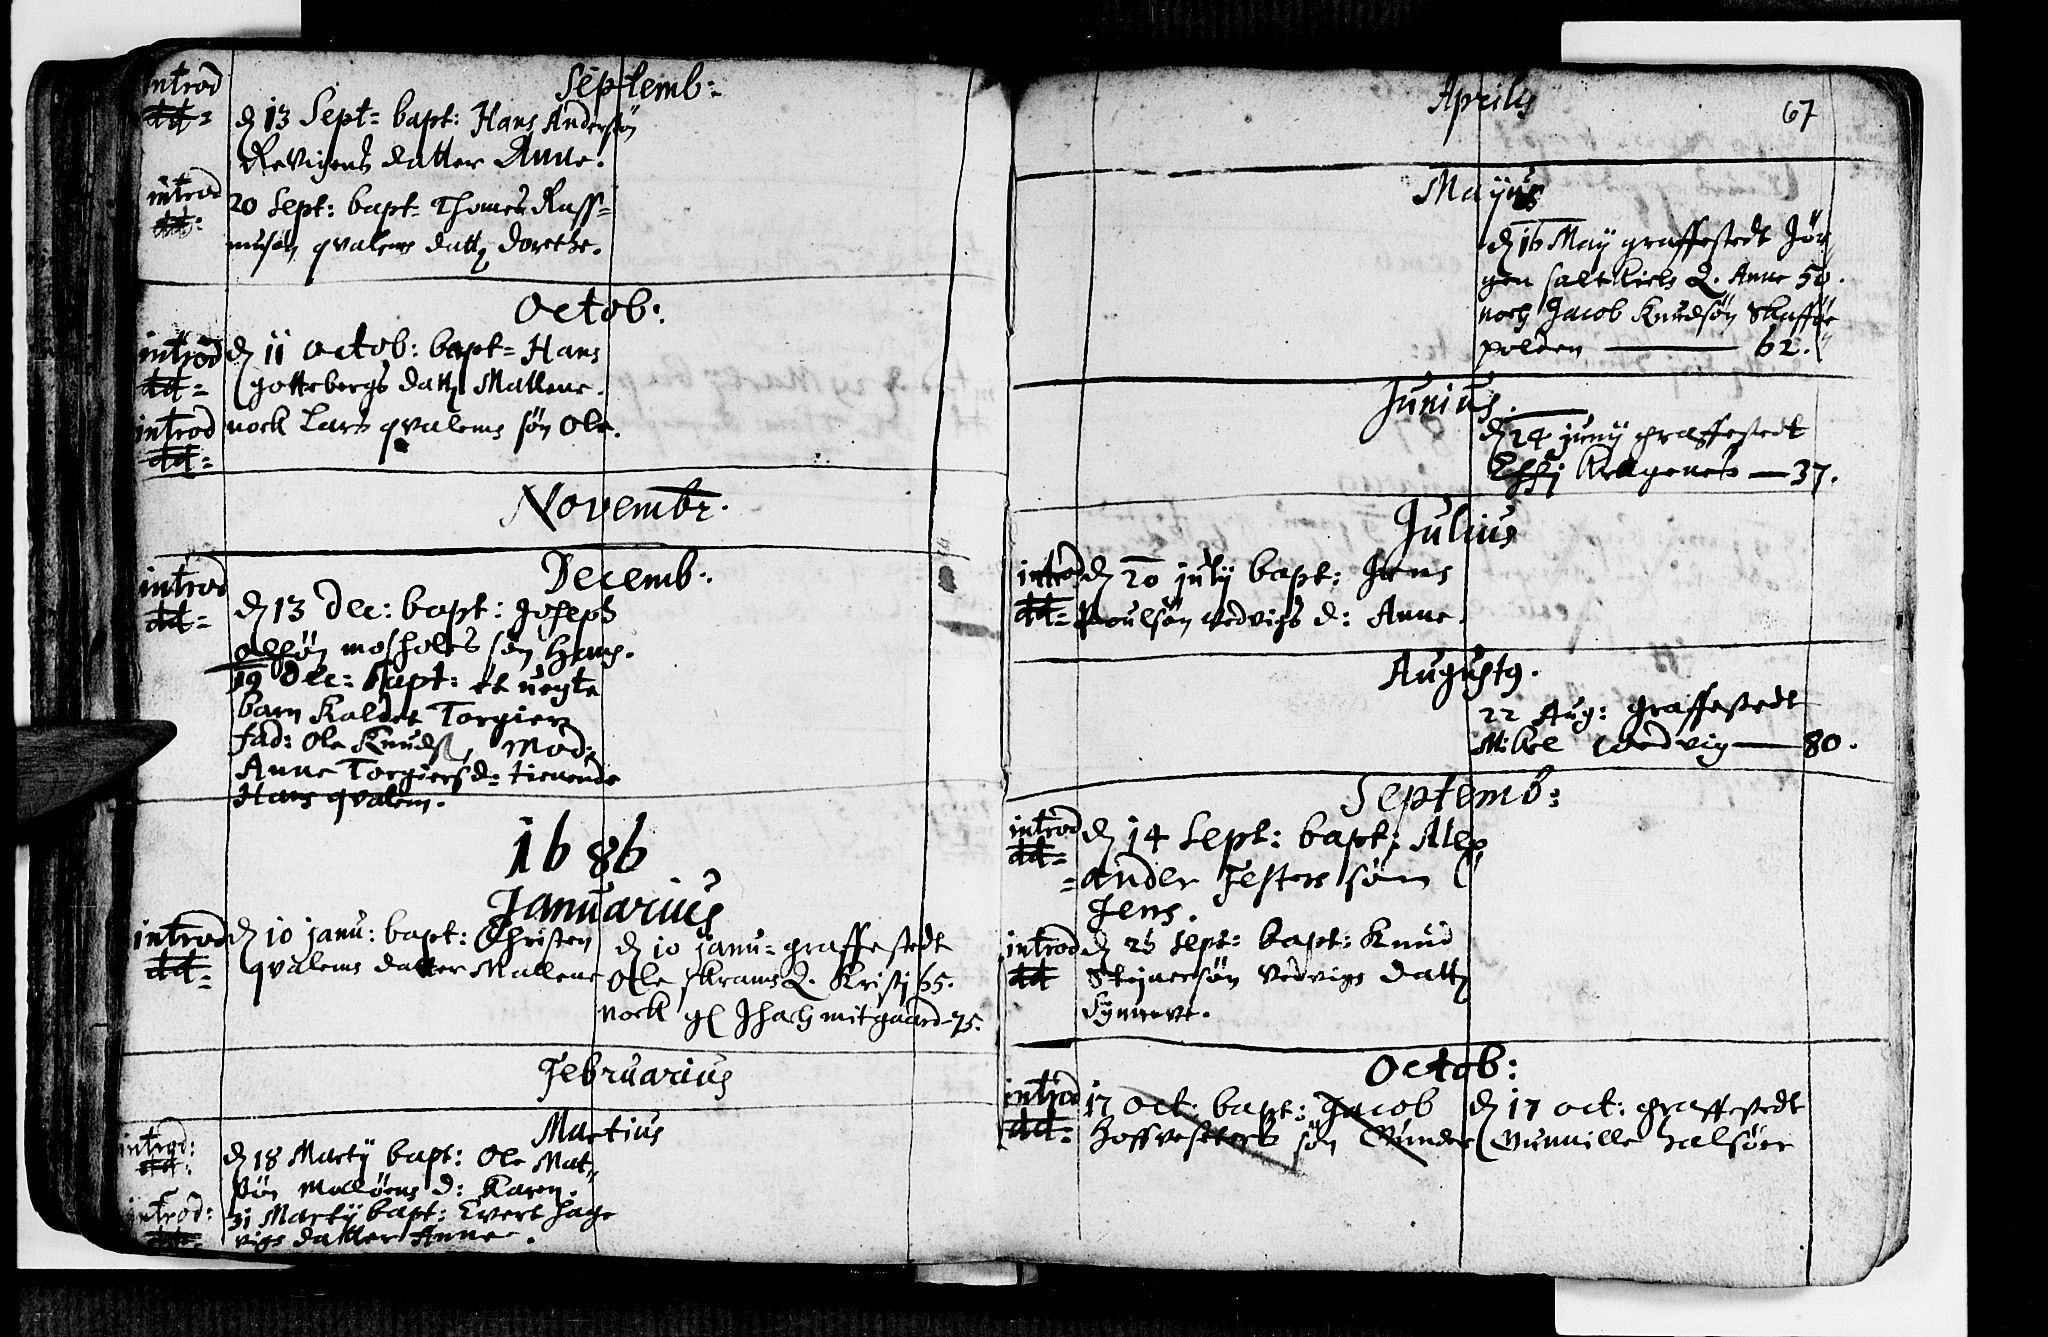 Septemb:
introd
dd=
d 13 Sept= bapt: Hans Andersøn
Revigens datter Anne.
introd
dd:
20 Sept: bapt= Thomes Rass=
musøn qvalems datt Dorethe.
Octob:
introd
dd=
d 11 octob: bapt= Hans
gottebergs datt Mallene.
introd
dd=
nock Lars qvalems søn Ole.
Novembr.
Decemb:
introd
dd=
d 13 Dec: bapt: Joseph
olssøn mosholes søn Hans.
19 Dec: bapt: et uegte
barn Kaldet Torgier
fad: Ole Knuds, Mod:
Anne Torgiers d= tienende
Hans qvalem.
1686
Januarius
introd
dd=
d 10 janu: bapt: Christen
qvalems datter Mallene
d 10 janu= graffestedt
Ole skrams Q. Kristj 65.
nock gl Ihach mitgaard-75.
Februarius
Martius
introd:
dd:
d 18 Martij bapt: Ole Mat=
søn Molløens d: Karen.
introd:
dd=
31 Martij bapt: Evert hage
vigs datter Anne.
Aprilis
67
Mayus
d 16 May graffestedt Jør
gen saltkiels Q. Anne 50.
noch Jacob Knudsøn Skaffør
polden — 62.
Junius.
d 24 junij graffestedt
Kragenes — 37.
Julius
introd
dd=
d 20 july bapt: Jens
Poulsøn Vedvigs d: Anne.
Augusty.
22 Aug: graffestedt
Mikel vedvig — 80.
Septemb:
introd
dd=
d 14 Sept: bapt: Alex
=ander Festers søn
Jens.
introd
dd
d 26 Sept= bapt: Knud
Stejnersøn Vedvigs datt
Synneve.
Octob:
introd
dd=
17 oct: bapt: Jacob
hoffvesters søn Gunder
d 17 oct: graffestedt
Gunnille halsøer